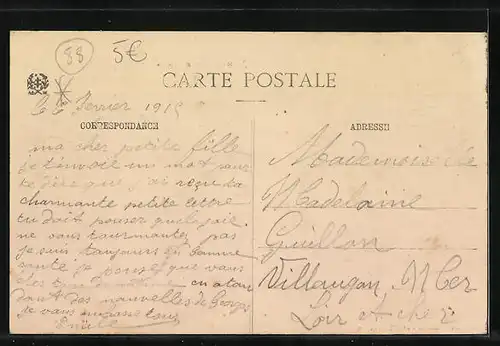 88 5€
CARTE POSTALE
Fevrier 191
CORRESPONDANCE
ADRESSE
ma cher petite fille
je t'envoie un mot pour
te dire que j'ai reçu ta
charmante petite lettre
tu doit penser quel joie
ne vous tourmentez pas
je suis toujours en bonne
santé je pense que vous
êtes de même en atan
dant des nouvelles de Georges
je vous embrasse tous
Emile
Mademoiselle
Madelaine
Guillon
Villaugon Mer
Loir et cher